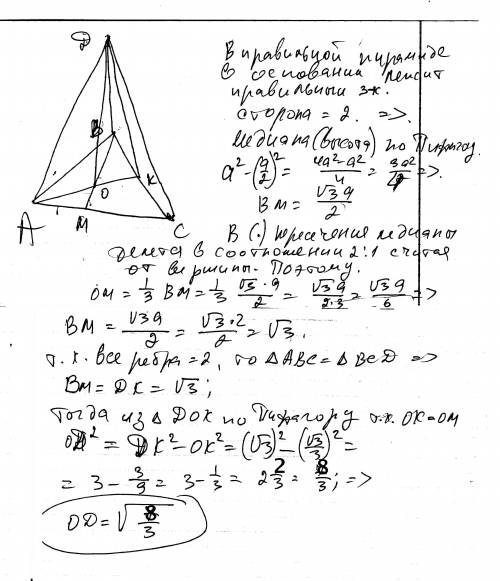 D
B
O
K
A
M
C
В правильной пирамиде
в основании лежит
правильный 3-к.
сторона = 2. =>.
Медиана (высота) по Пифагору.
a² - (a/2)² = (4a² - a²)/4 = 3a²/4 =>.
BM = √3a/2
В (·) пересечения медианы
делятся в соотношении 2:1 считая
от вершины. Поэтому.
OM = 1/3 BM = 1/3 √3·a/2 = √3a/2·3 = √3a/6 =>
BM = √3a/2 = √3·2/2 = √3.
т.к. все ребра = 2, то △ABC = △BCD =>
BM = DK = √3;
Тогда из △DOK по Пифагору т.к. OK = OM
OD² = DK² - OK² = (√3)² - (√3/3)² =
= 3 - 3/9 = 3 - 1/3 = 2 2/3 = 8/3; =>
OD = √8/3